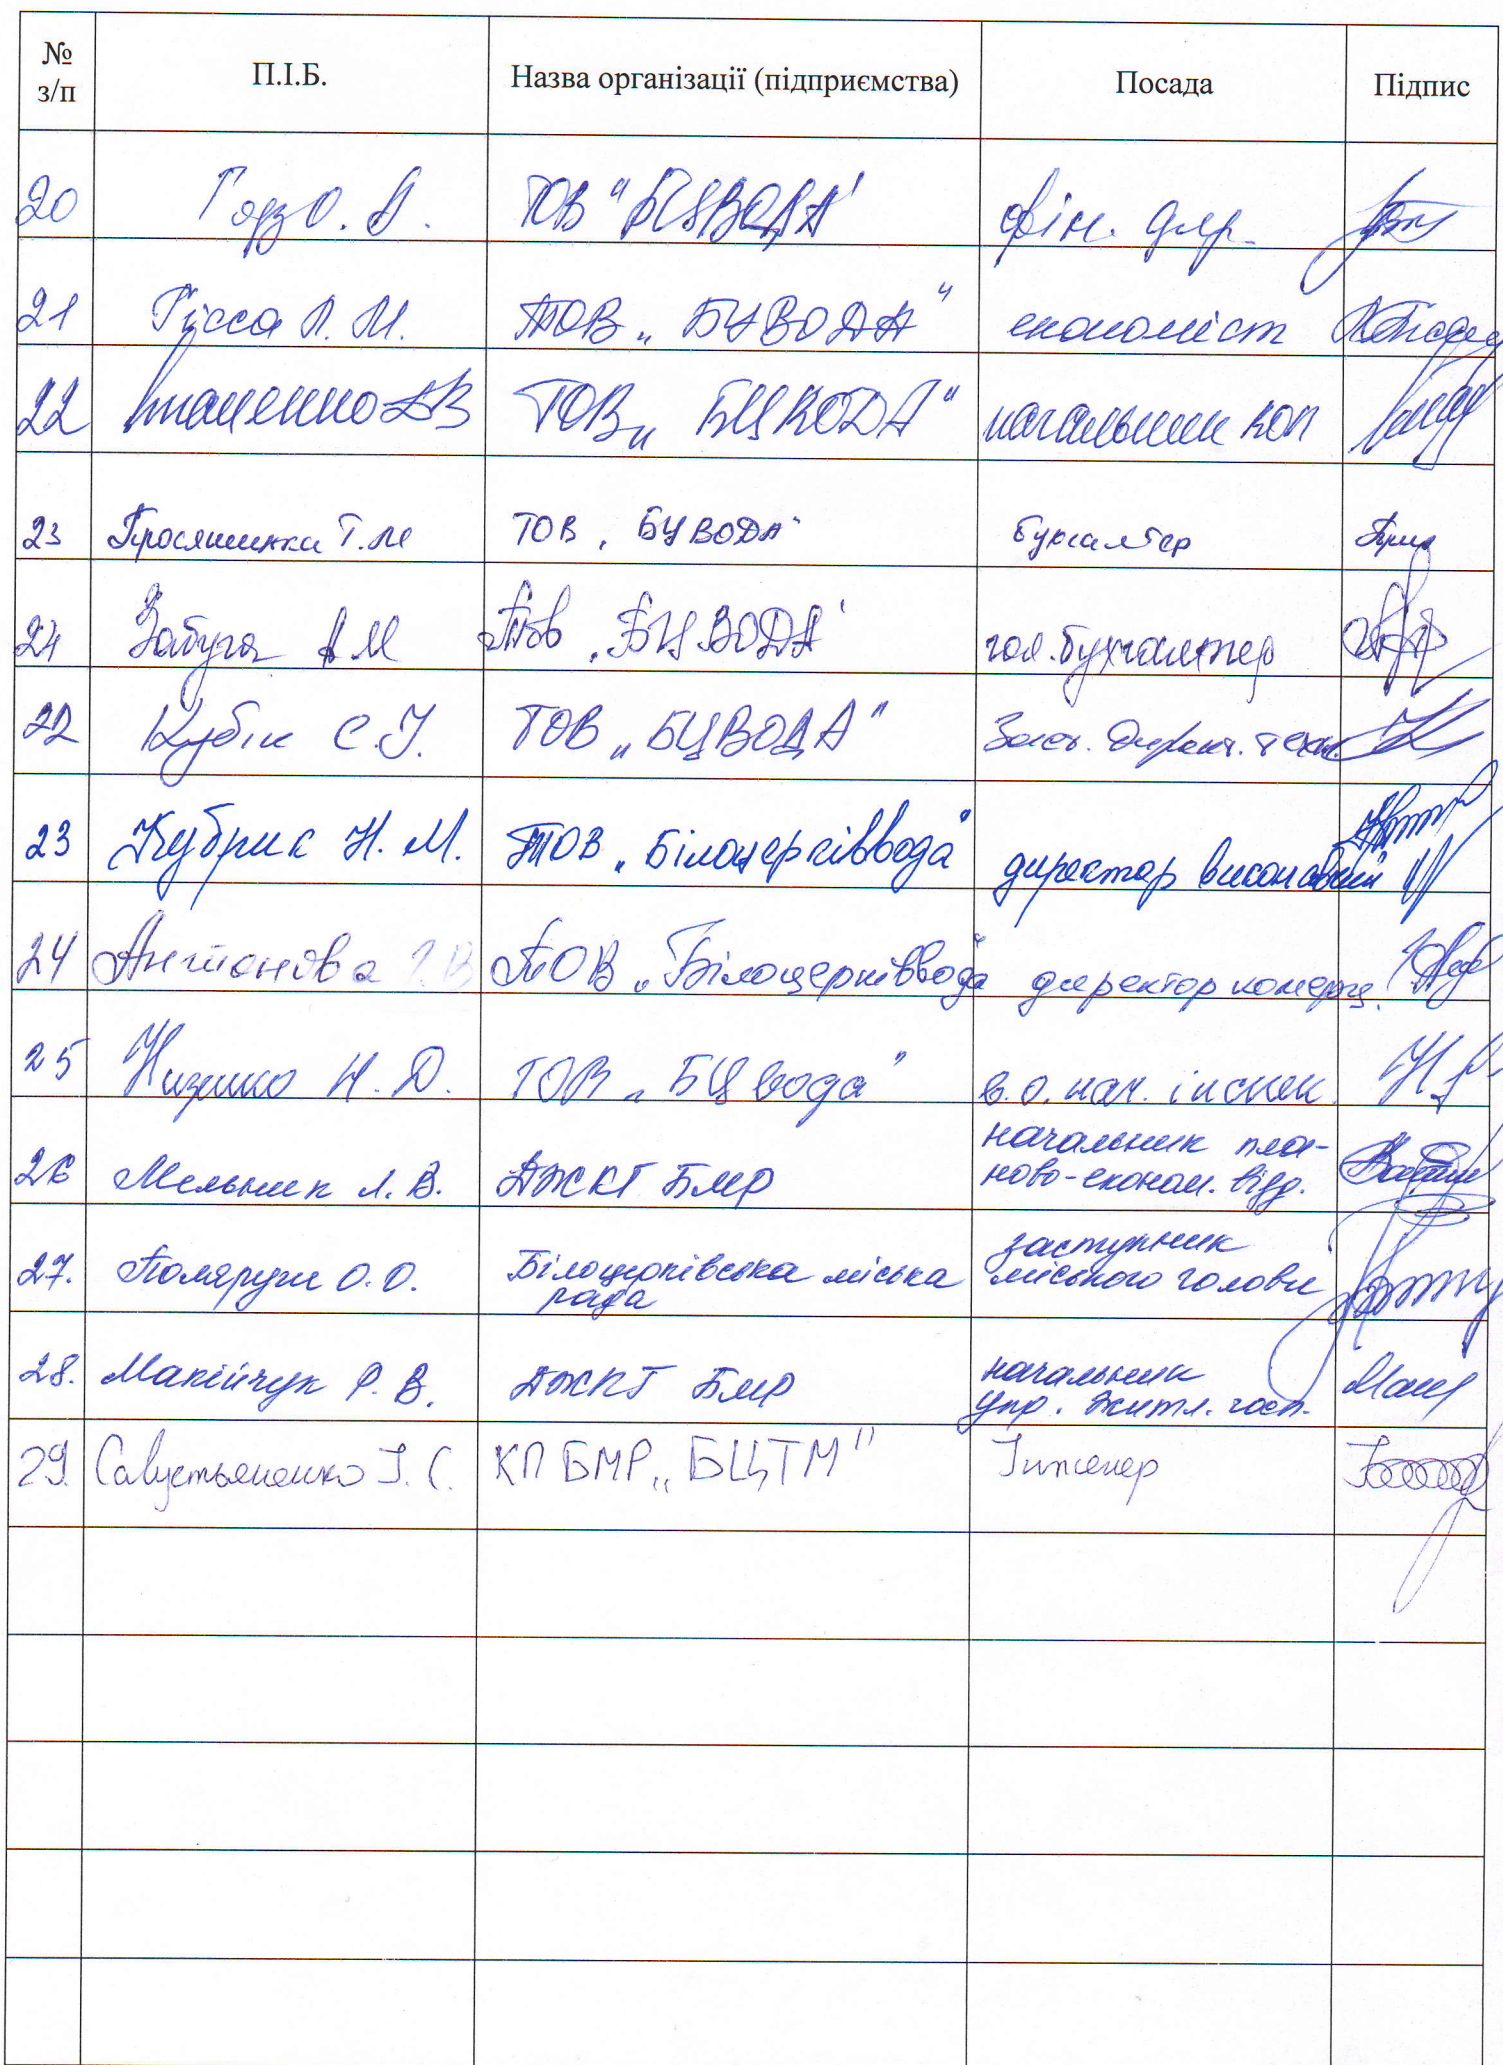 № з/п П.І.Б. Назва організації (підприємства) Посада Підпис
20 О. А. ТОВ "БЦВОДА" фін. дир.
21 Гісса Л. М. ТОВ „БЦВОДА" економіст
22 ТОВ „БЦВОДА" начальник
23 Т.М ТОВ „БЦВОДА" бухгалтер
24 Забуга А М ТОВ „БЦВОДА" гол. бухгалтер
22 Кубік С. І. ТОВ „БЦВОДА" Заст. директ. техн.
23 Кубрик Н. М. ТОВ „Білоцерківвода" директор виконавчий
24 Антонова ТОВ „Білоцерківвода" директор комерц.
25 Н. Д. ТОВ „БЦвода" в.о. нач. інспек.
26 Мельник Л. В. ДЖКГ БМР начальник пла-
ново-економ. відд.
27. Поляруш О. О. Білоцерківська міська рада заступник
міського голови
28. Макійчук Р. В. ДЖКГ БМР начальник
упр. житл. госп.
29. Савустьяненко І. С. КП БМР „БЦТМ" Інженер